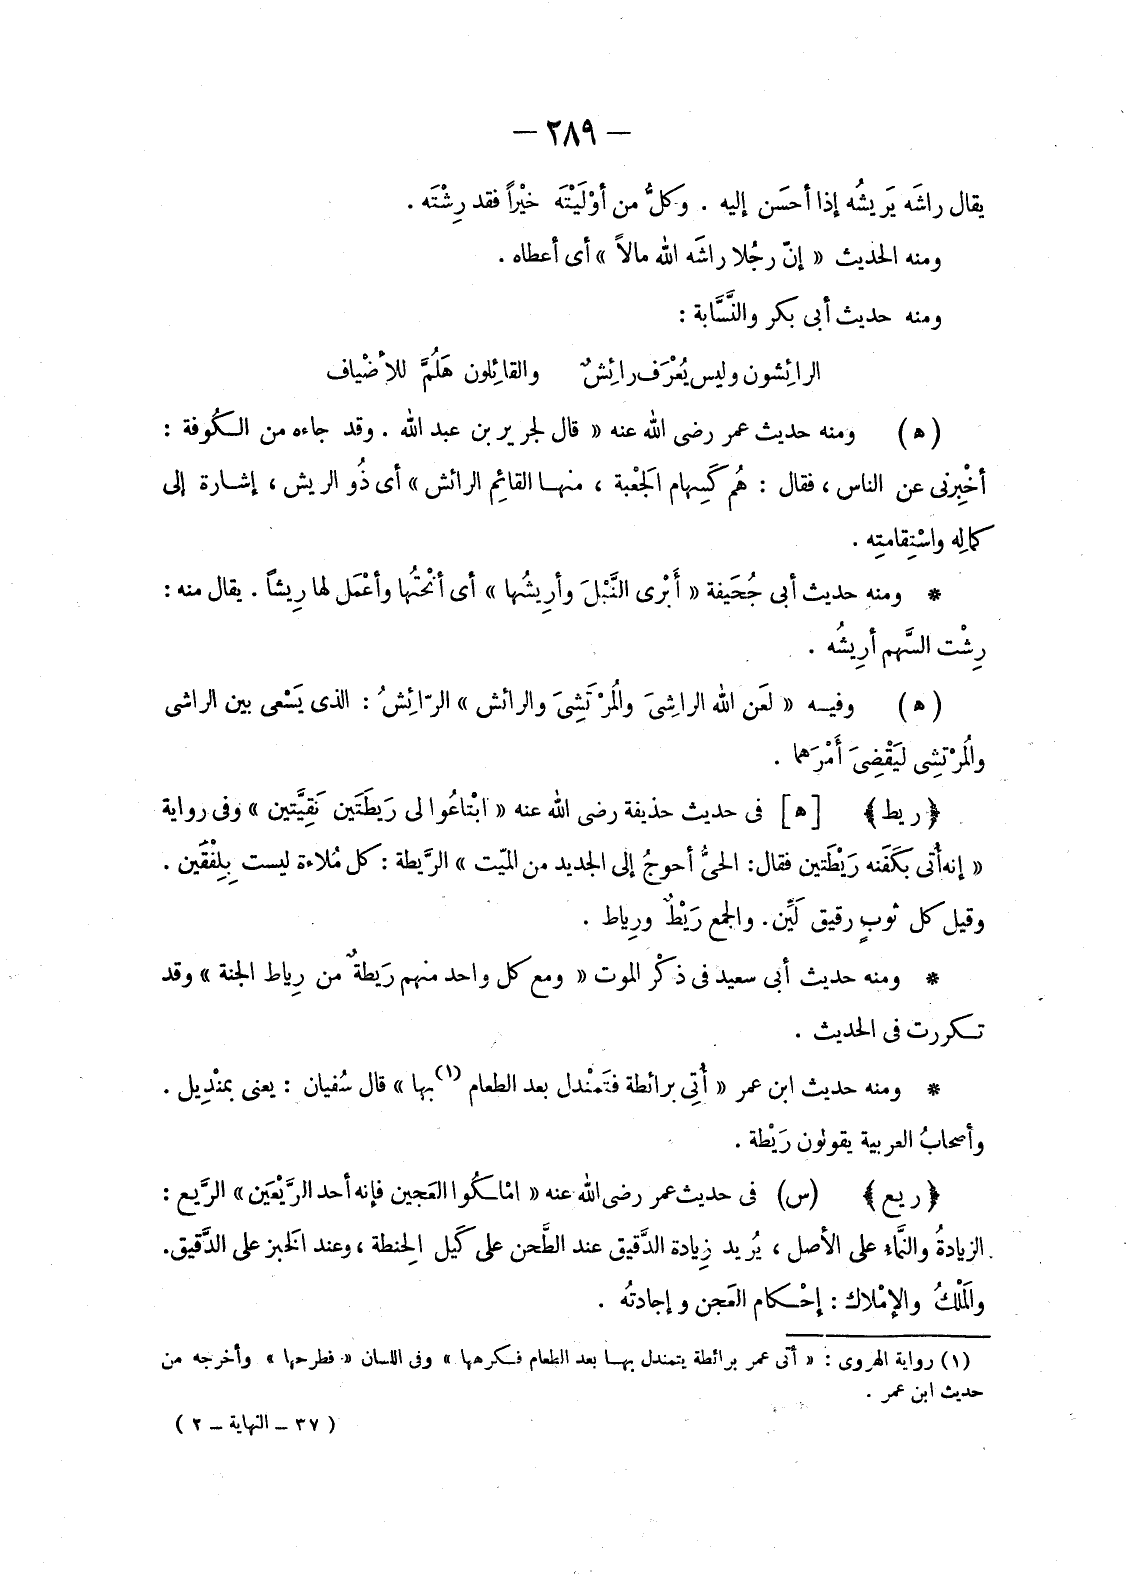 — ٢٨٩ —
يقال راشَه يَريشُه إذا أحسَن إليه . وكلُّ من أوْلَيْتَه خيْراً فقد رِشْتَه .
ومنه الحديث « إنّ رجُلا راشَه الله مالاً » أى أعطاه .
ومنه حديث أبى بكر والنَّسَّابة :
الرائِشون وليس يُعْرَف رائِشٌ والقائِلون هَلُمَّ للأضْياف
(ﻫ) ومنه حديث عمر رضى الله عنه « قال لجرير بن عبد الله . وقد جاءه من الكُوفة :
أخْبِرنى عن الناس ، فقال : هُم كَسِهام الجَعْبة ، منها القائِم الرائش » أى ذُو الريش ، إشارة إلى
كمالِه واسْتِقامتِه .
* ومنه حديث أبى جُحَيفة « أَبْرِى النَّبْلَ وأرِيشُها » أى أنْحتُها وأعْمَل لها رِيشاً . يقال منه :
رِشْت السَّهم أرِيشُه .
(ﻫ) وفيه « لعَن الله الراشِىَ والمُرْتَشِىَ والرائش » الرّائِشُ : الذى يَسْعى بين الراشى
والمُرْتشِى ليَقْضِىَ أَمْرَهما .
﴿ ريط ﴾ [ﻫ] فى حديث حذيفة رضى الله عنه « ابْتاعُوا لى رَيطَتَين نَقِيَّتين » وفى رواية
« إنه أُتى بكَفَنه رَيْطَتين فقال: الحىُّ أحوجُ إلى الجديد من الميّت » الرَّيطة : كل مُلاءة ليست بِلِفْقَين .
وقيل كل ثوبٍ رقيق لَيِّن. والجمع رَيْطٌ ورِياط .
* ومنه حديث أبى سعيد فى ذكْر الموت « ومع كل واحد منهم رَيطةٌ من رِياط الجنة » وقد
تكررت فى الحديث .
* ومنه حديث ابن عمر « أُتِى برائطة فتَمنْدل بعد الطعام (١) بها » قال سُفيان : يعنى بمنْدِيل .
وأصحابُ العربية يقولون رَيْطة .
﴿ ريع ﴾ (س) فى حديث عمر رضى الله عنه « امْلكُوا العَجين فإنه أحد الرَّيْعَين » الرَّيع :
الزيادةُ والنَّماء على الأصل ، يُريد زِيادة الدَّقيق عند الطَّحن على كَيل الحِنطة ، وعند الخبز على الدَّقيق.
والمَلْكُ والإمْلاك : إحْكام العَجن و إجادتُه .
(١) رواية الهروى : « أتى عمر برائطة يتمندل بها بعد الطعام فكرهها » وفى اللسان « فطرحها » وأخرجه من
حديث ابن عمر .
( ٣٧ – النهاية – ٢ )